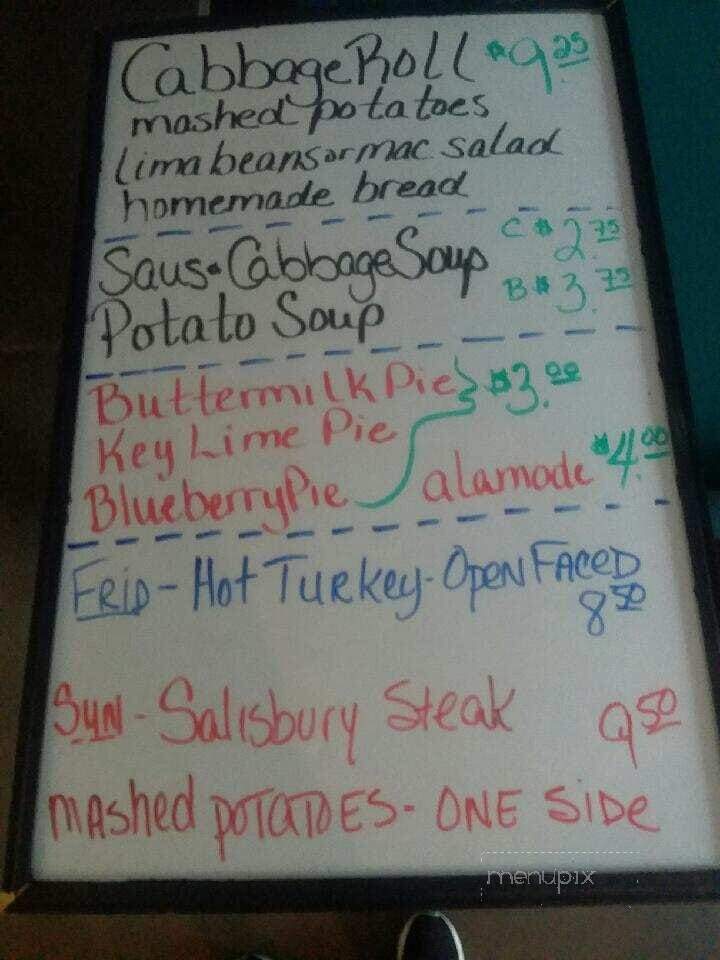 Cabbage Roll $9.25
mashed potatoes
lima beans or mac salad
homemade bread
Saus. Cabbage Soup C $2.75
Potato Soup B $3.75
Buttermilk Pie $3.00
Key Lime Pie
Blueberry Pie alamode $4.00
FRID - Hot TURkey - OpeN FAceD
8.50
SuN - Salisbury Steak 9.50
mAshed poTATOES - ONE SiDe
menupix